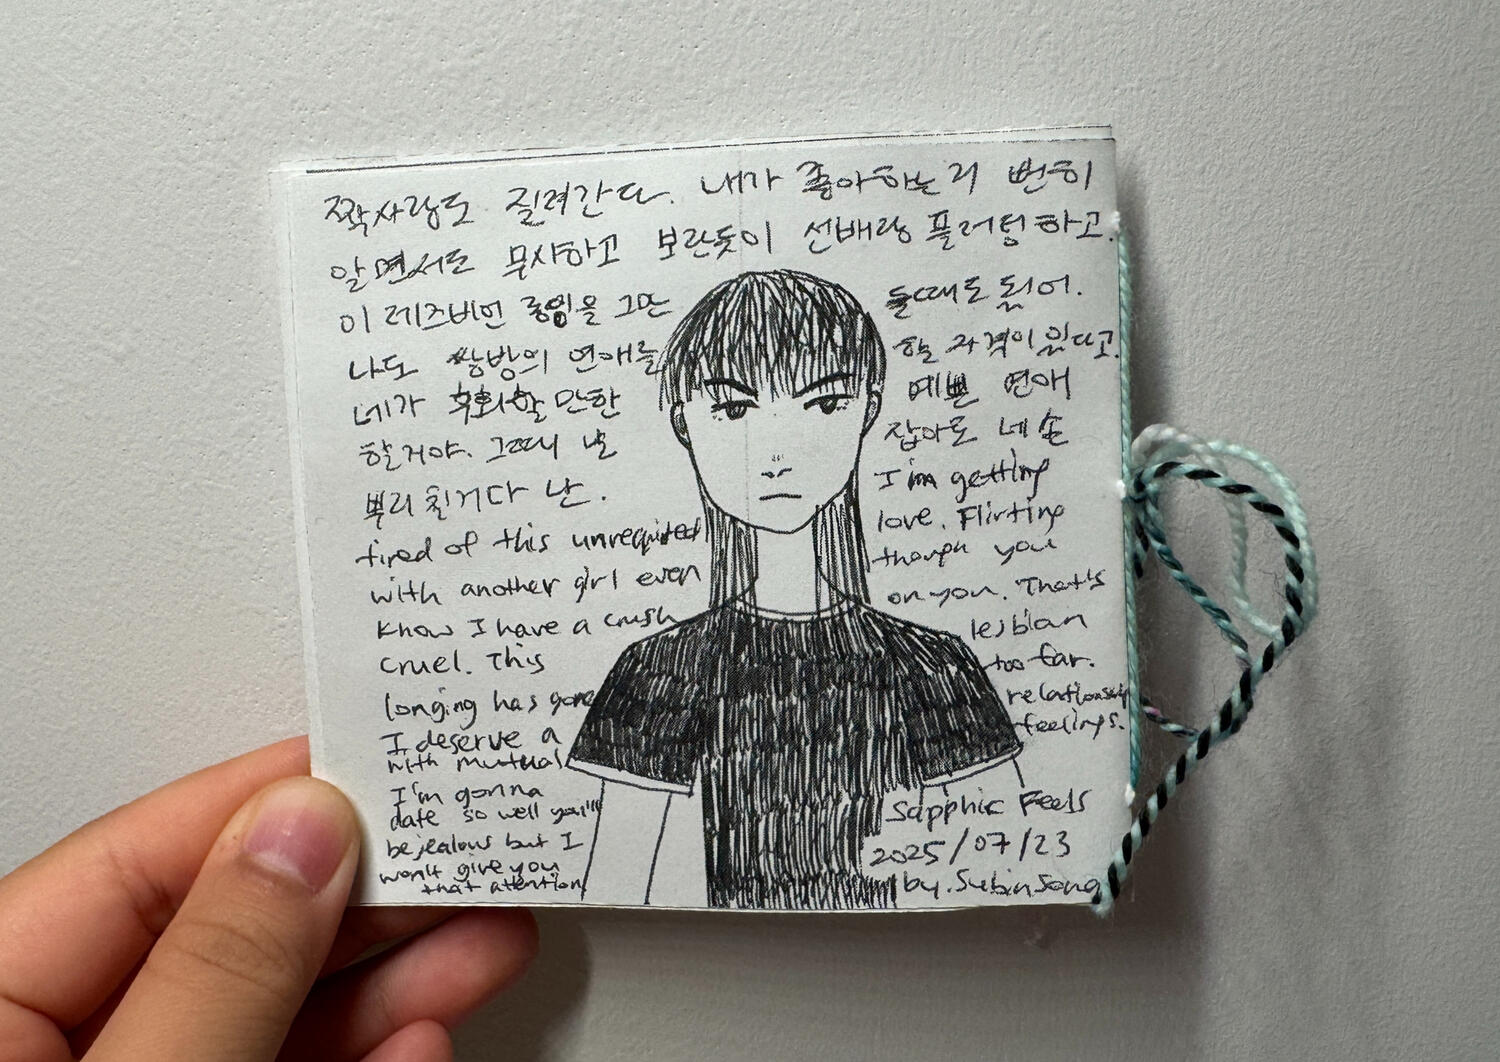 짝사랑도 질려간다. 내가 좋아하는거 뻔히
알면서도 무시하고 보란듯이 선배랑 플러팅하고.
이 레즈비언 롱잉을 그만 둘때도 됐어.
나도 쌍방의 연애를 할 자격이 있다고.
네가 후회할만한 예쁜 연애
할거야. 그때 날 잡아도 네 손
뿌리칠거다 난.
I'm getting
tired of this unrequited love. Flirting
with another girl even though you
know I have a crush on you. That's
cruel. This lesbian
longing has gone too far.
I deserve a relationship
with mutual feelings.
I'm gonna
date so well you'll
be jealous but I
won't give you
that attention
Sapphic Feels
2025/07/23
by. Subin Song